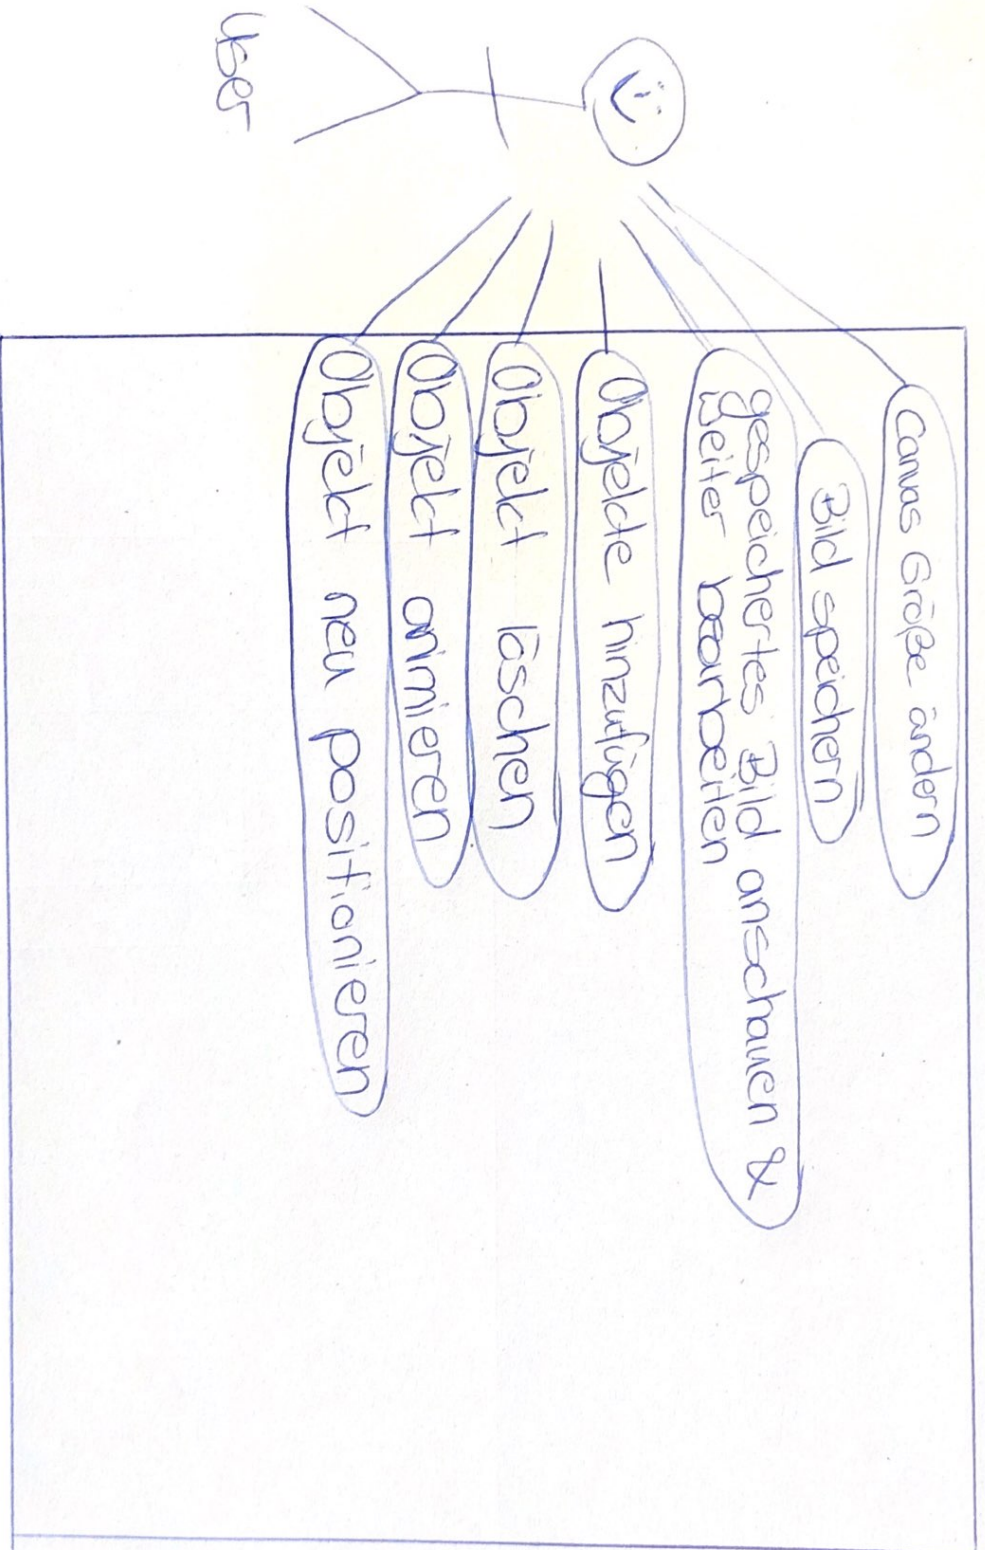 User
Canvas Größe ändern
Bild speichern
gespeichertes Bild anschauen &
weiter bearbeiten
Objekte hinzufügen
Objekt löschen
Objekt animieren
Objekt neu positionieren